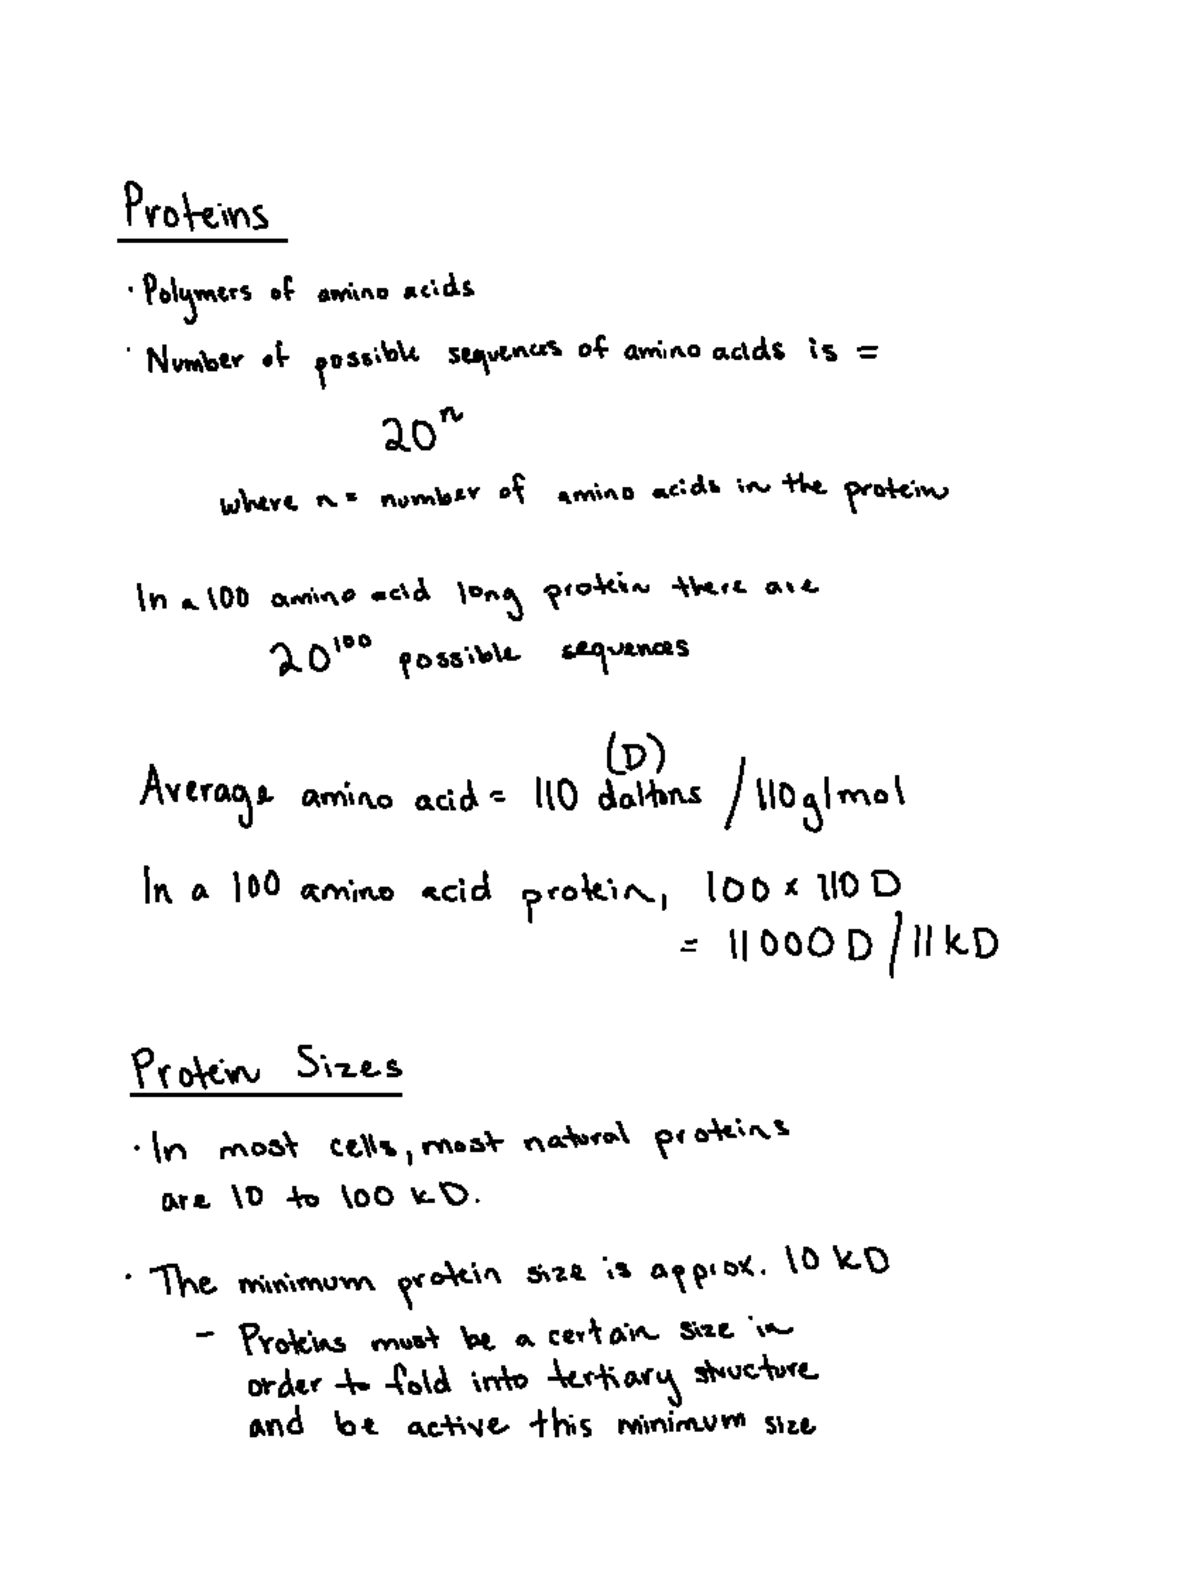 Proteins
· Polymers of amino acids
· Number of possible sequences of amino acids is =
20ⁿ
where n = number of amino acids in the protein
In a 100 amino acid long protein there are
20¹⁰⁰ possible sequences
(D)
Average amino acid = 110 daltons / 110g/mol
In a 100 amino acid protein, 100 x 110 D
= 11000 D / 11 kD
Protein Sizes
· In most cells, most natural proteins
are 10 to 100 kD.
· The minimum protein size is approx. 10 kD
- Proteins must be a certain size in
order to fold into tertiary structure
and be active this minimum size